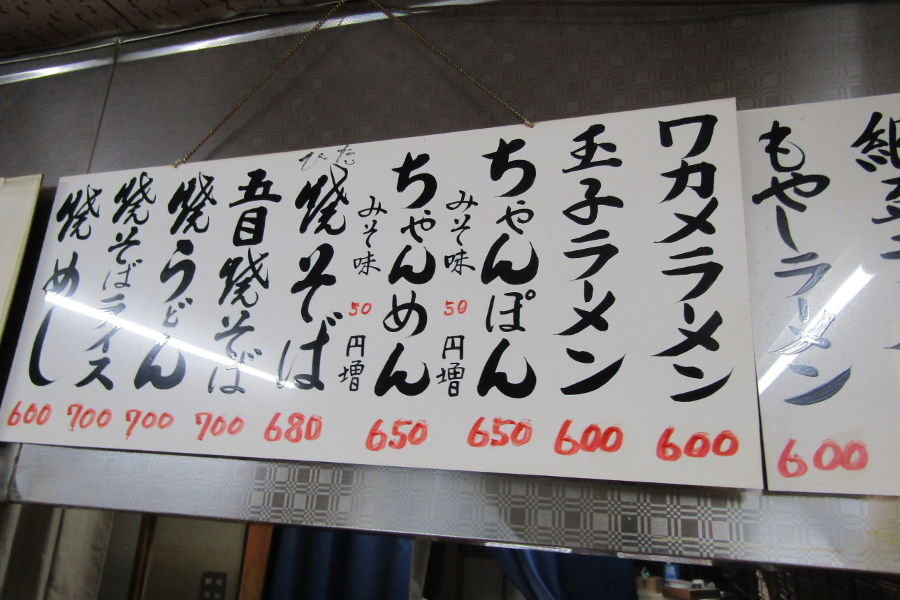 もやしラーメン
600
ワカメラーメン
600
玉子ラーメン
600
ちゃんぽん
みそ味 50 円増
650
ちゃんめん
みそ味 50 円増
650
ひた
焼そば
680
五目焼そば
700
焼うどん
700
焼そばライス
700
焼めし
600